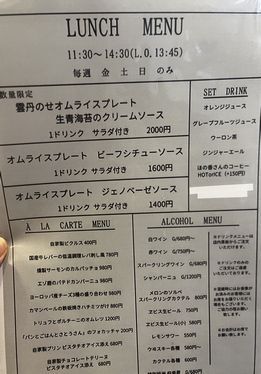 LUNCH MENU
11:30～14:30(L.O.13:45)
毎週 金 土 日 のみ
数量限定
雲丹のせオムライスプレート
生青海苔のクリームソース
1ドリンク サラダ付き 2000円
オムライスプレート ビーフシチューソース
1ドリンク サラダ付き 1600円
オムライスプレート ジェノベーゼソース
1ドリンク サラダ付き 1400円
SET DRINK
オレンジジュース
グレープフルーツジュース
ウーロン茶
ジンジャーエール
ほの香さんのコーヒー
HOTorICE (+150円)
À LA CARTE MENU
自家製ピクルス 400円
国産牛レバーの低温調理レバ刺し風 780円
燻製サーモンのカルパッチョ 980円
エゾ鹿のパテドカンパーニュ 980円
ヨーロッパ産チーズ3種の盛り合わせ 980円
カマンベールの鉄板焼きハチミツがけ 880円
トリュフとポルチーニのオムレツ 1200円
「パンとごはんとさとうさん」のフォカッチャ 200円
自家製プリン ピスタチオアイス添え 680円
自家製チョコレートテリーヌ
ピスタチオアイス添え 680円
ALCOHOL MENU
白ワイン G/680円～
赤ワイン G/750円～
スパークリングワイン G/680円～
シャンパーニュ G/1200円
メロンのソルベ
スパークリングカクテル 800円
ヱビス生ビール 750円
ヱビス生ビール(小) 580円
レモンサワー 550円
ウイスキー各種 580円～
カクテル各種 600円
※ドリンクメニューは
※ドリンクのみの